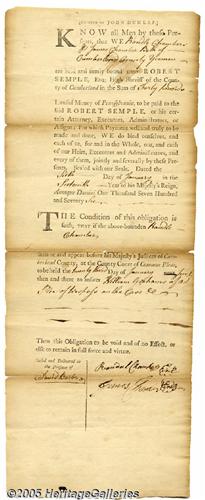 [PRINTED BY JOHN DUNLAP.]
KNOW all Men by these Presents, that WE Randle Chambers
& James Chambers Both of
Cumberland County Yeomen
are held and firmly bound unto ROBERT
SEMPLE, Esq; High Sheriff of the County
of Cumberland in the Sum of Forty Pounds
Lawful Money of Pennsylvania, to be paid to the
said ROBERT SEMPLE, or his certain Attorney, Executors, Administrators, or
Assigns: For which Payment well and truly to be
made and done, WE do bind ourselves, and
each of us, for and in the Whole, our, and each
of our Heirs, Executors and Administrators, and
every of them, jointly and severally by these Presents, Sealed with our Seals, Dated the
Day of January in the
Sixteenth Year of his Majesty's Reign,
Annoque Domini One Thousand Seven Hundred
and Seventy Six
THE Condition of this obligation is
such, that if the above-bounden Randle
Chambers
and appear before his Majesty's Justices of
County, at the County Court of Common Pleas,
to be held the Day of January
then and there to answer William
Plea of Trespass on the Case &c
Then this Obligation to be void and of no Effect, or
else to remain in full force and virtue.
Sealed and Delivered in
the Presence of
Randle Chambers
James Chambers
©2005 HeritageGalleries